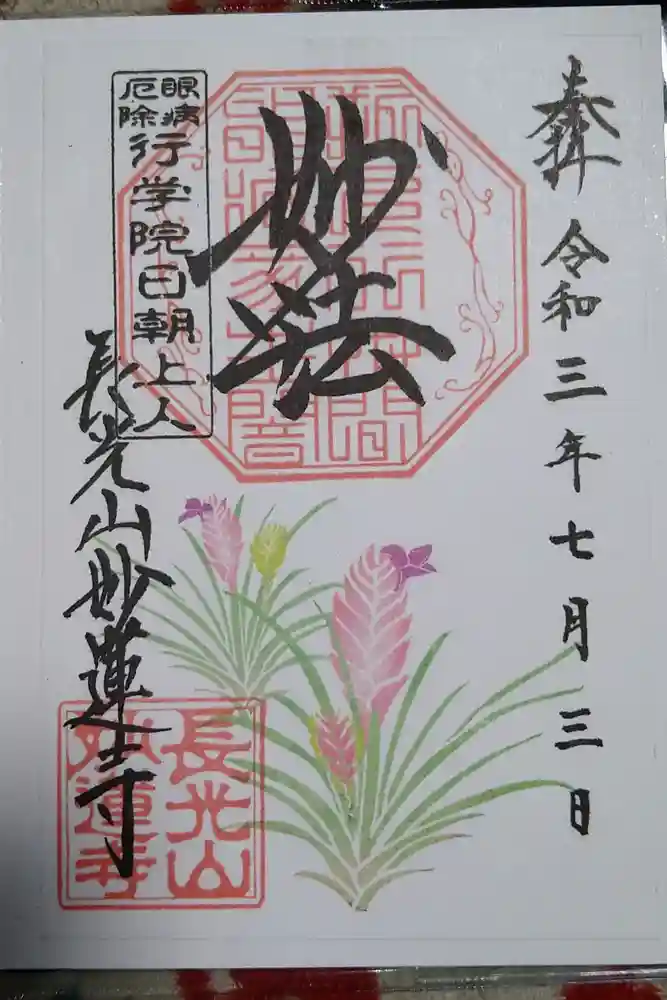 奉拝 令和三年七月三日
妙法
眼病
厄除
行学院日朝上人
長光山妙蓮寺
長光山
妙蓮寺